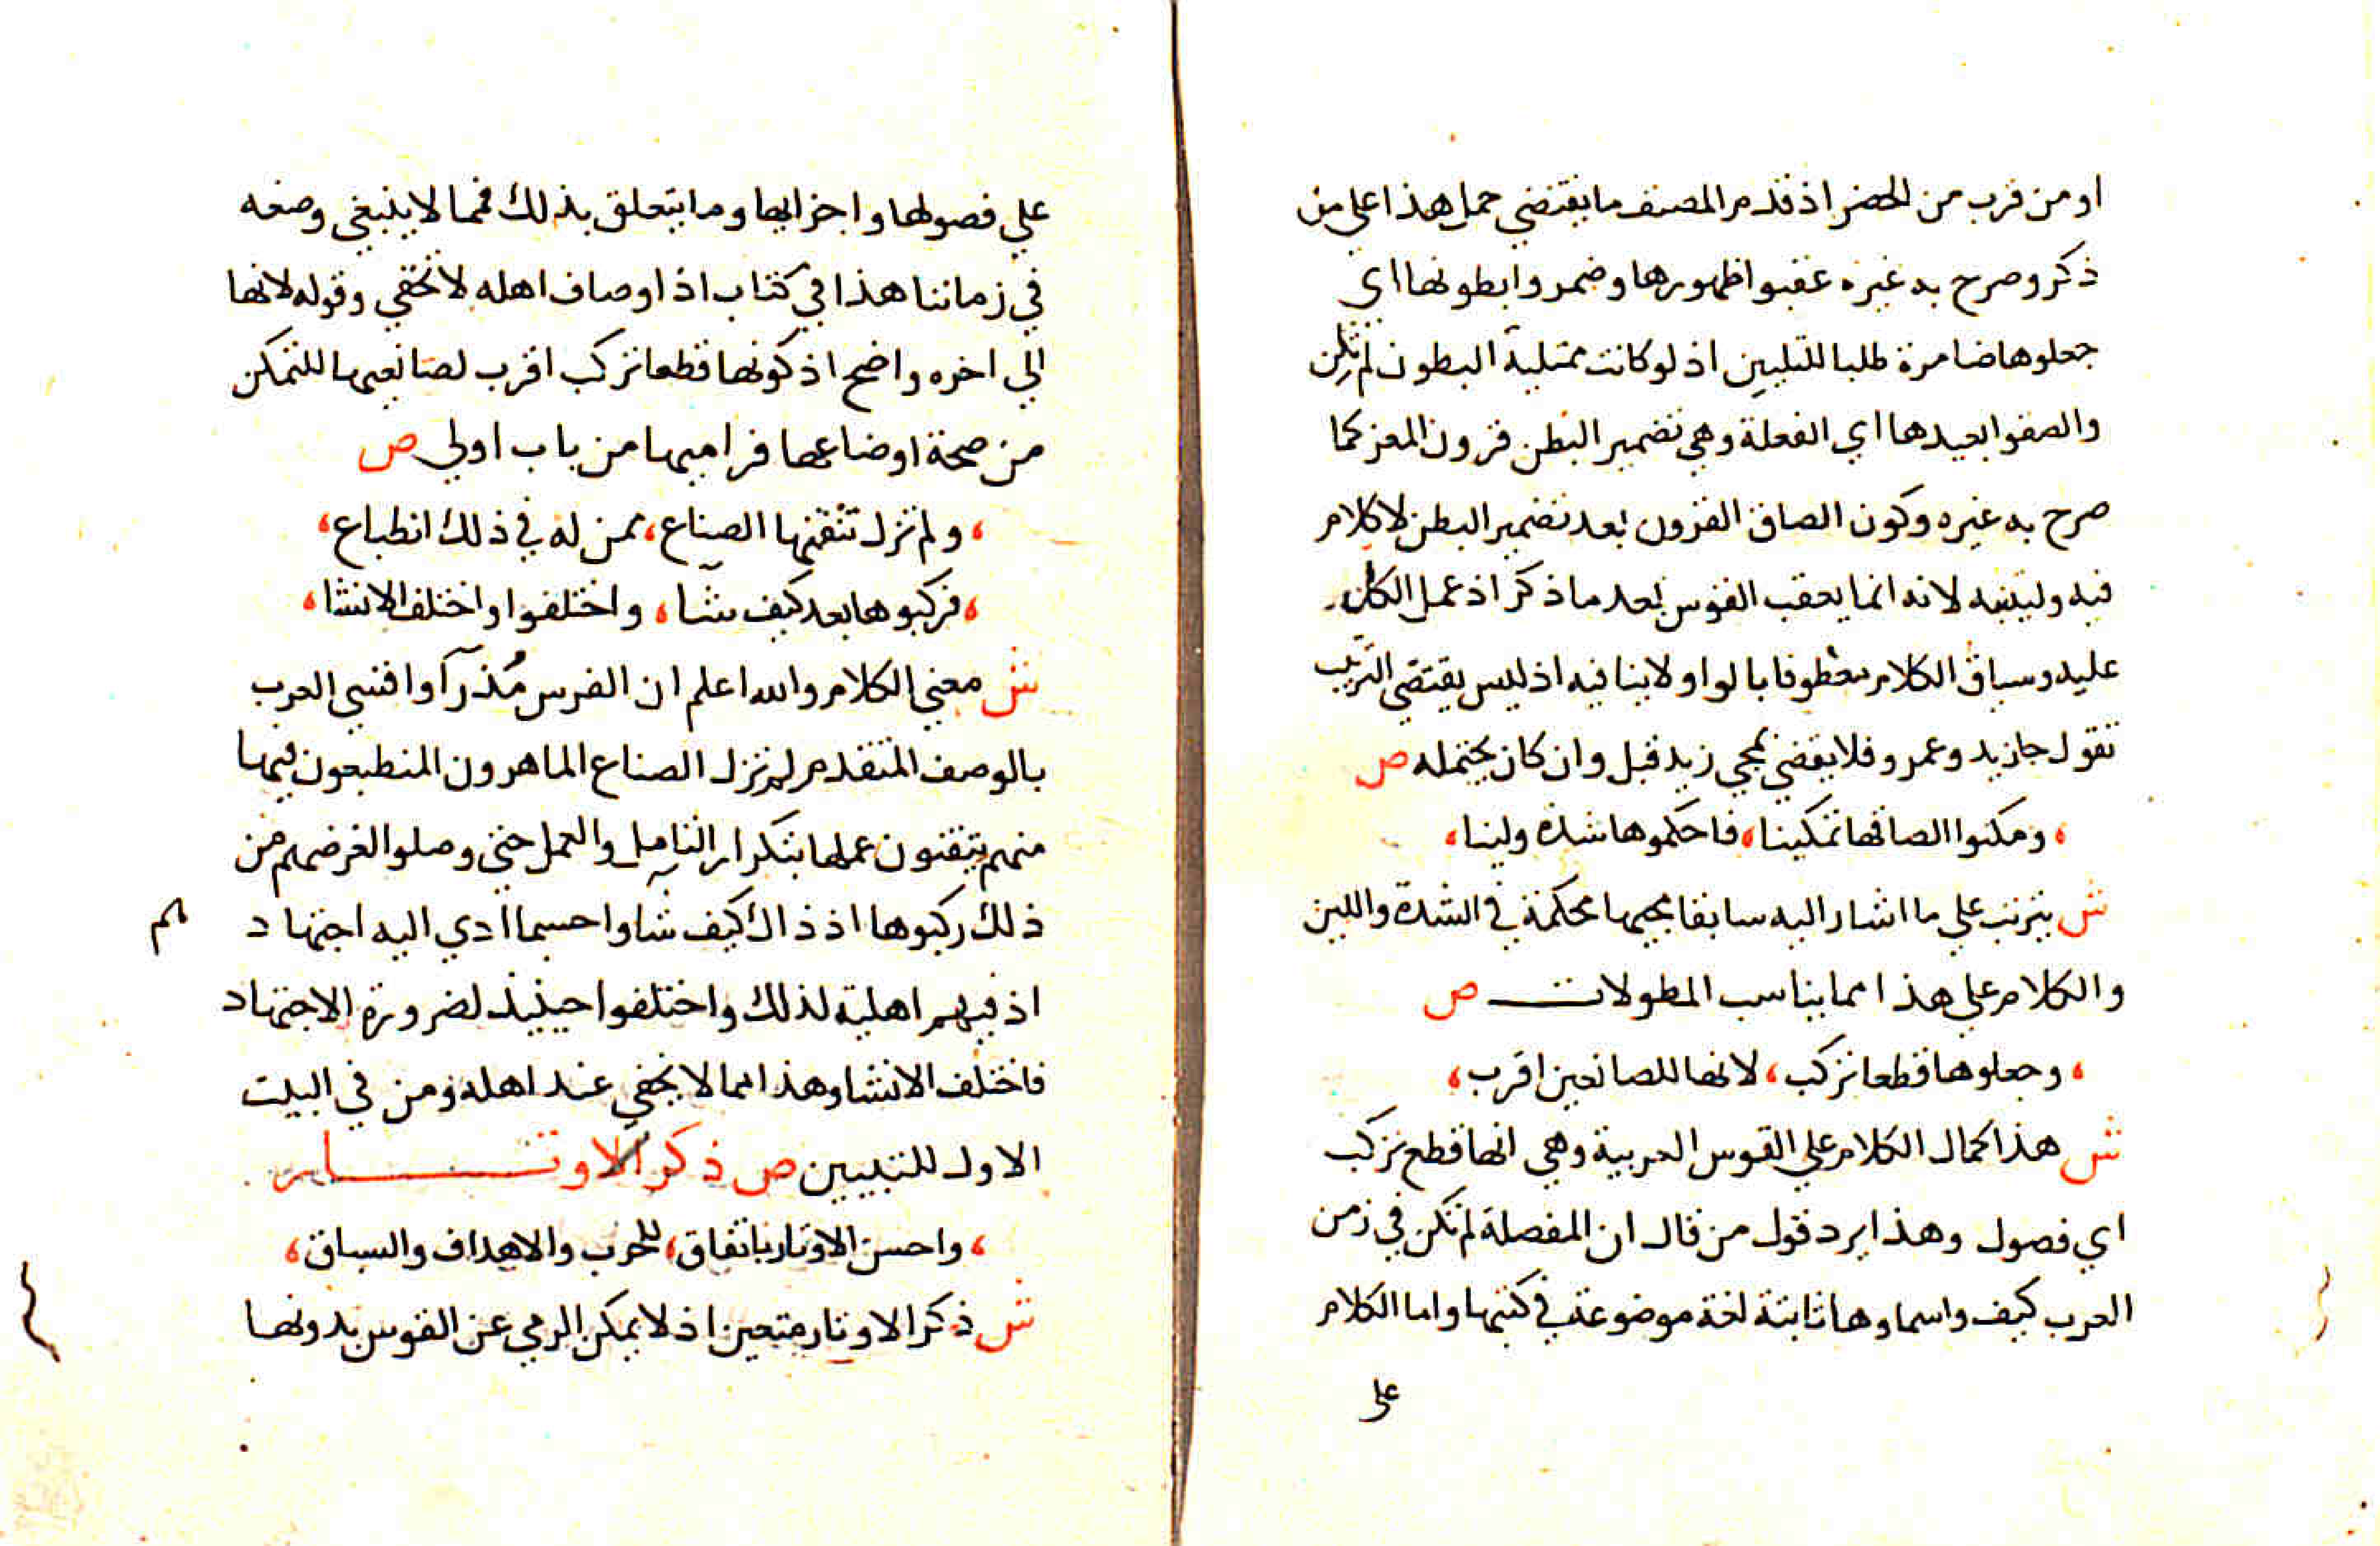 او من قرب من الحضر اذ قدم المصنف ما يقتضي حمل هذا على من
ذكر وصرح به غيره عقبوا ظهورها وضمروا بطونها اي
جعلوها ضامرة طلبا للتليين اذ لو كانت ممتلية البطون لم تلن
والصقوا بعيدها اي الفعلة وهي تضمير البطن قرون المعز كما
صرح به غيره وكون الصاق القرون بعد تضمير البطن لا كلام
فيه ولينتبه لانه انما يعقب القوس بعد ما ذكر اذ عمل الكل
عليه وسياق الكلام معطوفا بالواو لا ينافيه اذ ليس يقتضي الترتيب
تقول جا زيد وعمرو فلا يقضي بمجي زيد قبل وان كان يحتمله ص
، ومكنوا الصاقها تمكينا، فاحكموها شدة ولينا،
ش يترتب على ما اشار اليه سابقا مجيها محكمة في الشدة واللين
والكلام على هذا مما يناسب المطولات ص
، وجعلوها قطعا تركب، لانها للصانعين اقرب،
ش هذا كمال الكلام علي القوس العربية وهي انها قطع تركب
اي فصول وهذا يرد قول من قال ان المفصلة لم تكن في زمن
العرب كيف واسماوها ثابتة لغة موضوعة في كتبها واما الكلام
على
علي فصولها واجزايها وما يتعلق بذلك فمما لا ينبغي وضعه
في زماننا هذا في كتاب اذ اوصاف اهله لا تخفي وقوله لانها
الي اخره واضح اذ كونها قطعا تركب اقرب لصانعيها للتمكن
من صحة اوضاعها فراميها من باب اولي ص
، ولم تزل تتقنها الصناع، ممن له في ذلك انطباع،
، فركبوها بعد كيف شا، واختلفوا واختلف الانشا،
ش معني الكلام والله اعلم ان الفرس مُذ رآوا قسي العرب
بالوصف المتقدم لم تزل الصناع الماهرون المنطبعون فيها
منهم يتقنون عملها بتكرار التامل والعمل حتي وصلوا لغرضهم من
ذلك ركبوها اذ ذاك كيف شاوا حسبما ادي اليه اجتهاد هم
اذ فيهم اهلية لذلك واختلفوا حينيذ لضرورة الاجتهاد
فاختلف الانشا وهذا مما لا يخفي عند اهله ومن في البيت
الاول للتبيين ص ذكر الاوتار
، واحسن الاوتار باتفاق، للحرب والاهداف والسباق،
ش ذكر الاوتار متعين اذ لا يمكن الرمي عن القوس بدونها